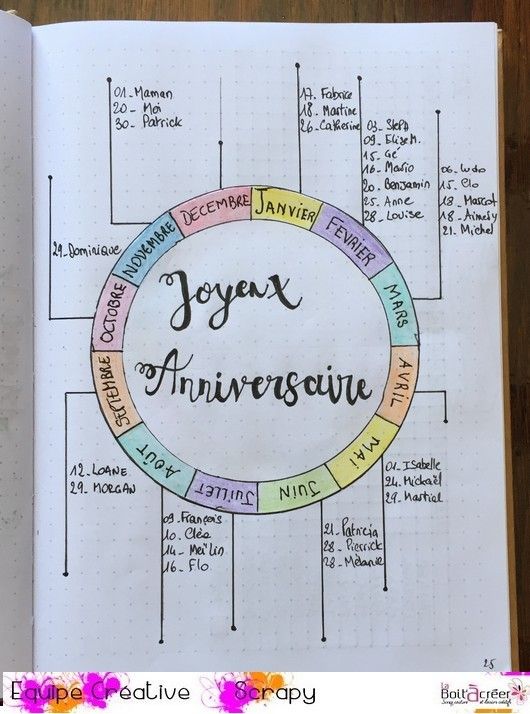 01_ Maman
20_ Moi
30_ Patrick
17_ Fabrice
18_ Martine
26_ Catherine
03_ Steph
09_ Elise M.
15_ Gé
16_ Mario
20_ Benjamin
25_ Anne
28_ Louise
06_ Ludo
15_ Clo
18_ Mascot
18_ Aimely
21_ Michel
29_ Dominique
JANVIER
FEVRIER
MARS
AVRIL
MAI
JUIN
JUILLET
AOÛT
SEPTEMBRE
OCTOBRE
NOVEMBRE
DECEMBRE
Joyeux
Anniversaire
12_ LOANE
29_ MORGAN
09_ François
10_ Cléa
14_ Meï'lin
16_ Flo
21_ Patricia
28_ Pierrick
28_ Mélanie
01_ Isabelle
24_ Mickaël
29_ Martial
25
Equipe Créative Scrapy
La Boit à créer